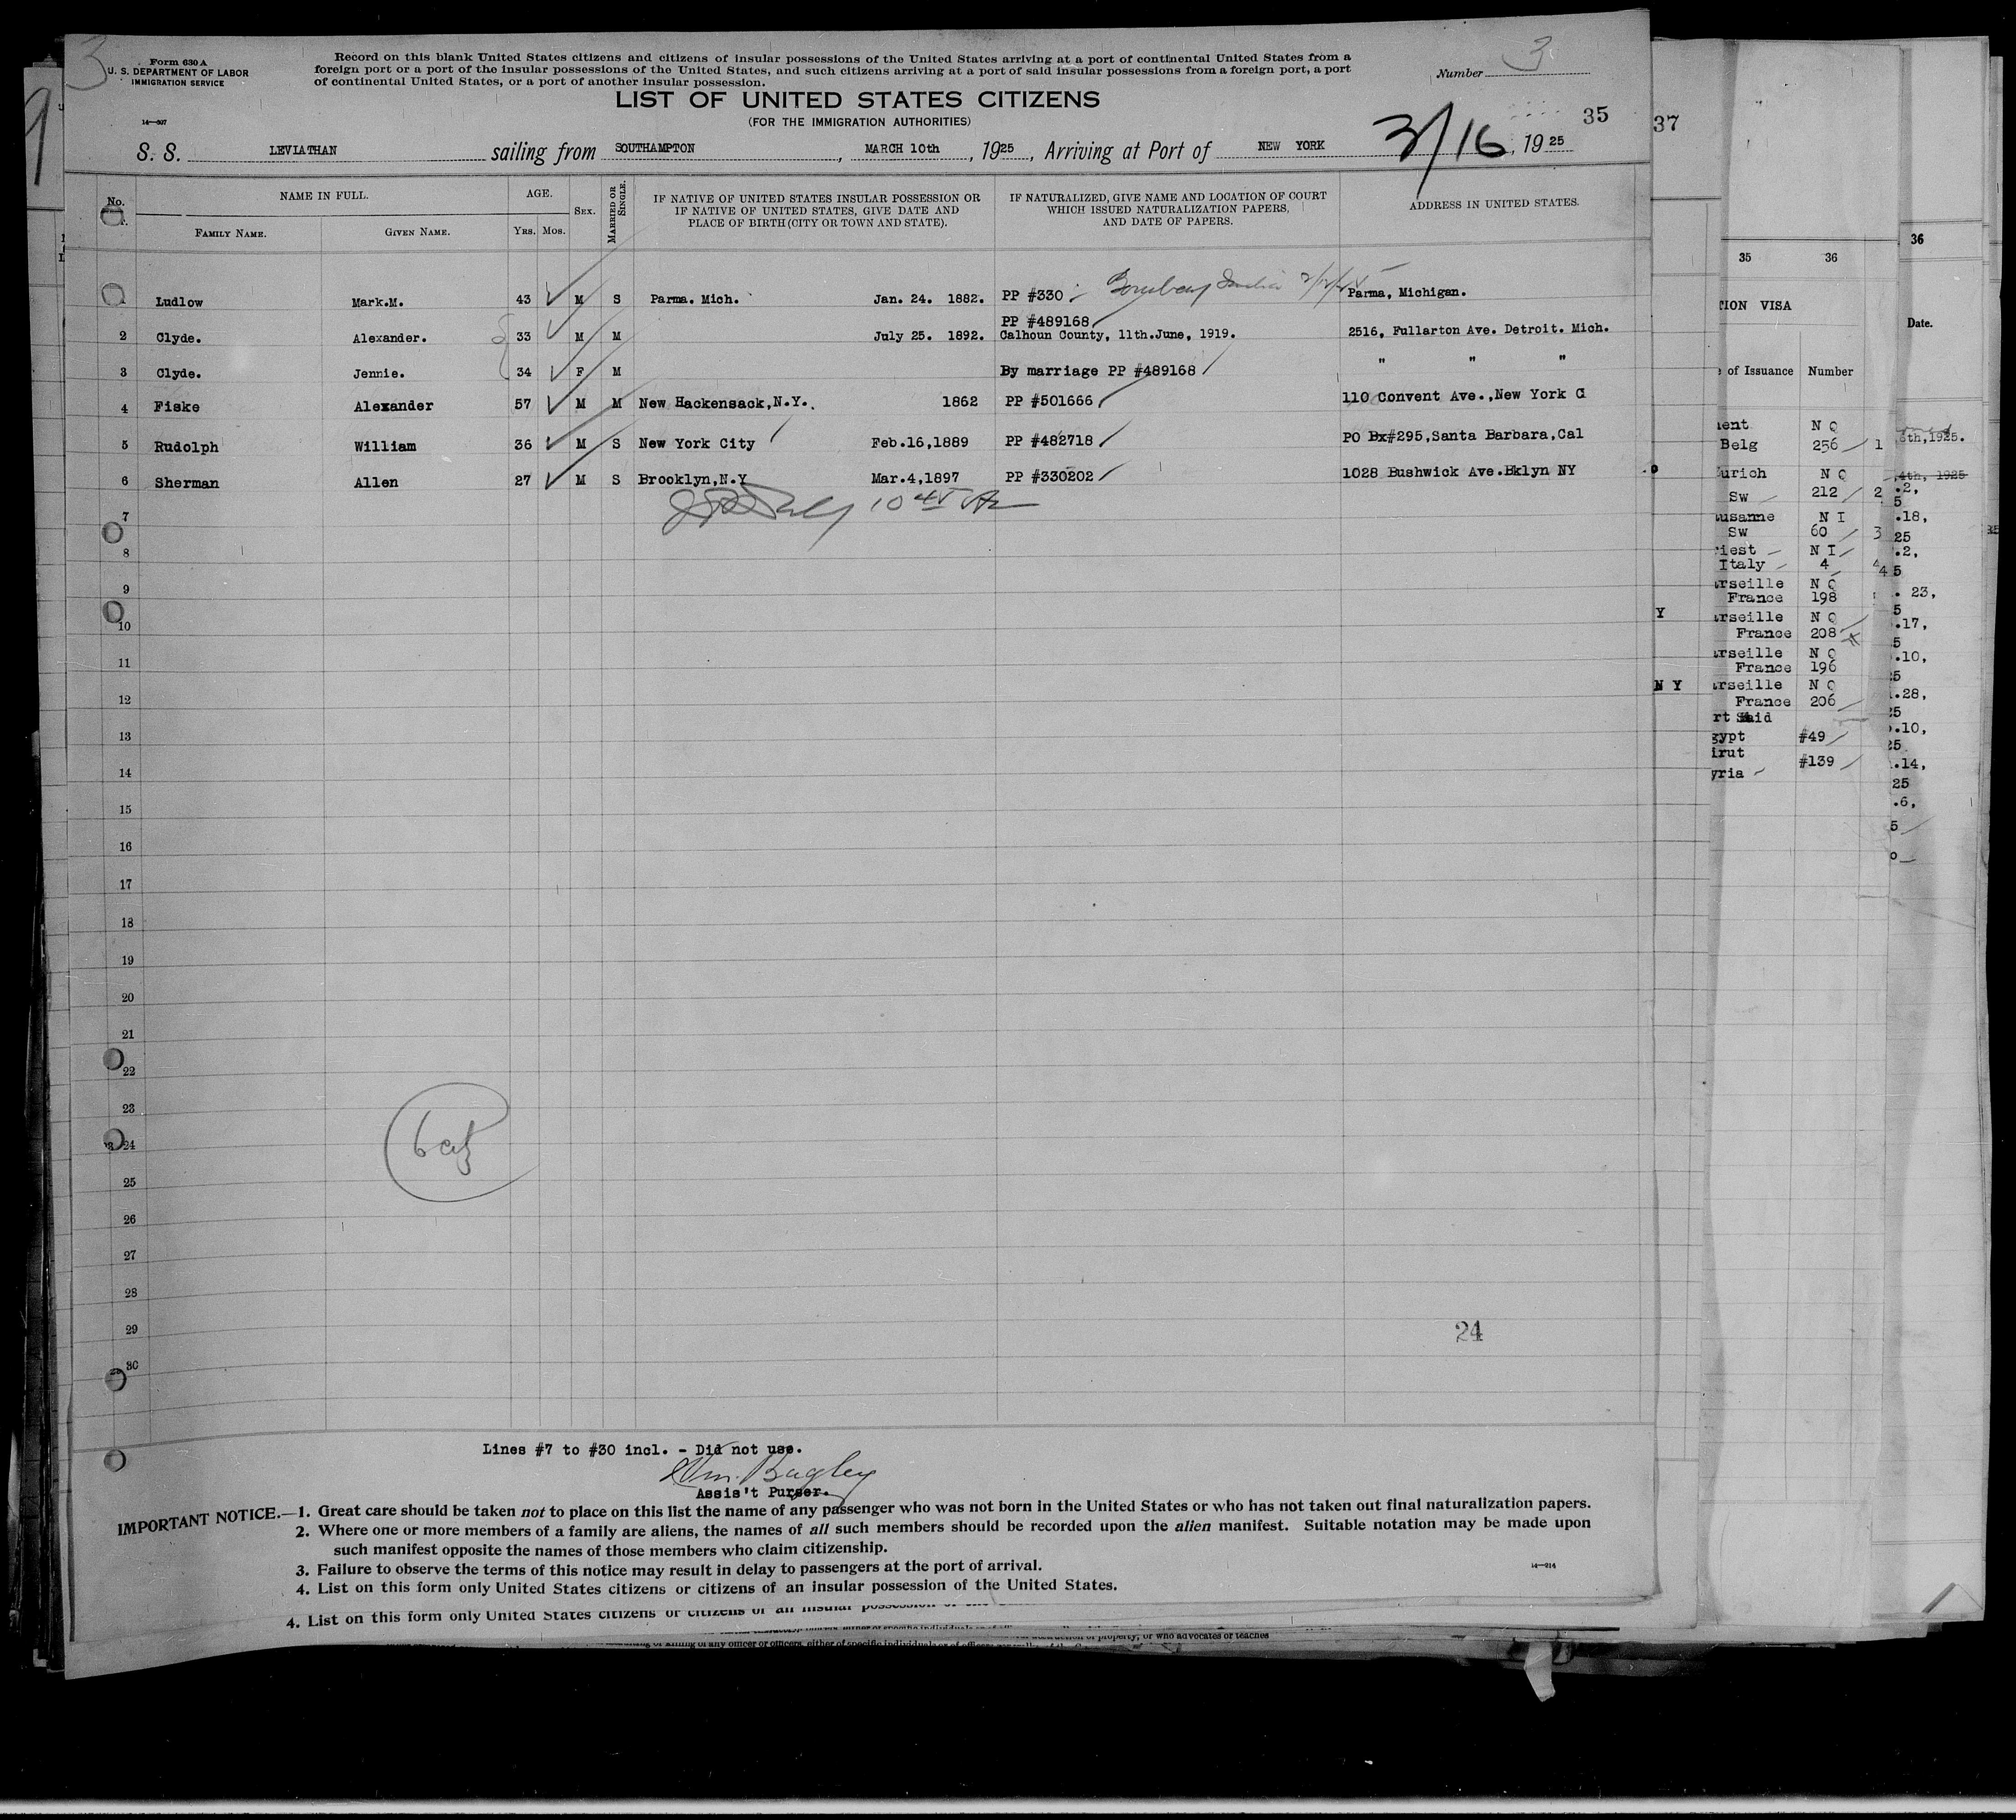 3
Form 630 A
U. S. DEPARTMENT OF LABOR
IMMIGRATION SERVICE
14—307
Record on this blank United States citizens and citizens of insular possessions of the United States arriving at a port of continental United States from a
foreign port or a port of the insular possessions of the United States, and such citizens arriving at a port of said insular possessions from a foreign port, a port
of continental United States, or a port of another insular possession.
Number 3
LIST OF UNITED STATES CITIZENS
(FOR THE IMMIGRATION AUTHORITIES)
35
S. S. LEVIATHAN sailing from SOUTHAMPTON, MARCH 10th, 1925, Arriving at Port of NEW YORK 3/16, 1925
No. NAME IN FULL. AGE. SEX. MARRIED OR SINGLE. IF NATIVE OF UNITED STATES INSULAR POSSESSION OR IF NATIVE OF UNITED STATES, GIVE DATE AND PLACE OF BIRTH (CITY OR TOWN AND STATE). IF NATURALIZED, GIVE NAME AND LOCATION OF COURT WHICH ISSUED NATURALIZATION PAPERS, AND DATE OF PAPERS. ADDRESS IN UNITED STATES.
FAMILY NAME. GIVEN NAME. YRS. MOS.
Ludlow Mark.M. 43 M S Parma. Mich. Jan. 24. 1882. PP #330 Bombay India Parma, Michigan.
PP #489168
2 Clyde. Alexander. 33 M M July 25. 1892. Calhoun County, 11th.June, 1919. 2516, Fullarton Ave. Detroit. Mich.
3 Clyde. Jennie. 34 F M By marriage PP #489168 " " "
4 Fiske Alexander 57 M M New Hackensack,N.Y. 1862 PP #501666 110 Convent Ave.,New York C
5 Rudolph William 36 M S New York City Feb.16,1889 PP #482718 PO Bx#295,Santa Barbara,Cal
6 Sherman Allen 27 M S Brooklyn,N.Y Mar.4,1897 PP #330202 1028 Bushwick Ave.Bklyn NY
7
8
9
10
11
12
13
14
15
16
17
18
19
20
21
22
23
24
25
26
27
28
29
30
24
Lines #7 to #30 incl. - Did not use.
Wm. Bagley
Assis't Purser.
IMPORTANT NOTICE.—1. Great care should be taken not to place on this list the name of any passenger who was not born in the United States or who has not taken out final naturalization papers.
2. Where one or more members of a family are aliens, the names of all such members should be recorded upon the alien manifest. Suitable notation may be made upon
such manifest opposite the names of those members who claim citizenship.
3. Failure to observe the terms of this notice may result in delay to passengers at the port of arrival.
14—214
4. List on this form only United States citizens or citizens of an insular possession of the United States.
4. List on this form only United States citizens or citizens of an insular possession
37
Y
N Y
35 36
TION VISA
of Issuance Number
N Q
Belg 256 1
N Q
Sw 212 2
N I
Sw 60 3
N I
Italy 4 4
N Q
France 198
N Q
France 208
N Q
France 196
N Q
France 206
#49
#139
36
Date.
6th,1925.
4th, 1925
.2,
5
.18,
25
.2,
5
. 23,
5
.17,
5
.10,
25
.28,
25
.10,
25
.14,
25
.6,
5